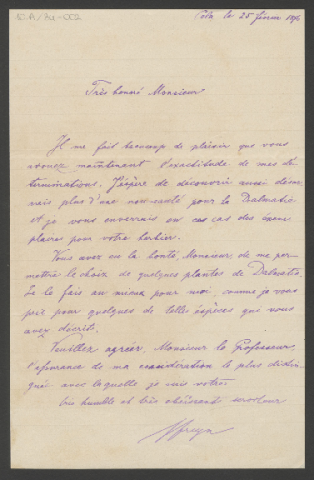 Cela le 25 février 1896
Très honoré Monsieur
Il me fait beaucoup de plaisir que vous
avouez maintenant l'exactitude de mes dé-
terminations. J'espère de découvrir aussi désor-
mais plus d'une nouveauté pour la Dalmatie
et je vous enverrais en cas cas des exem-
plaires pour votre herbier.
Vous avez eu la bonté, Monsieur, de me per-
mettre le choix de quelques plantes de Dalmatie.
Je le fais au mieux pour moi, comme je vous
prie pour quelques de telles espèces que vous
avez décrits.
Veuillez agréer, Monsieur le Professeur,
l'assurance de ma considération le plus distin-
guée avec laquelle je suis votre
très humble et très obéissant serviteur